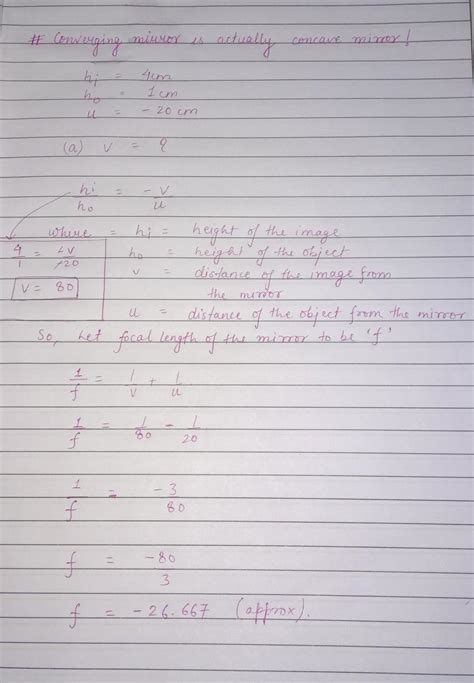 # Converging mirror is actually concave mirror!
hi = 4cm
ho = 1cm
u = -20 cm
(a) v = ?
hi/ho = -v/u
where = hi = height of the image
4/1 = -v/-20
ho = height of the object
v = 80
v = distance of the image from
the mirror
u = distance of the object from the mirror
So, Let focal length of the mirror to be 'f'
1/f = 1/v + 1/u
1/f = 1/80 - 1/20
1/f = -3/80
f = -80/3
f = -26.667 (approx).